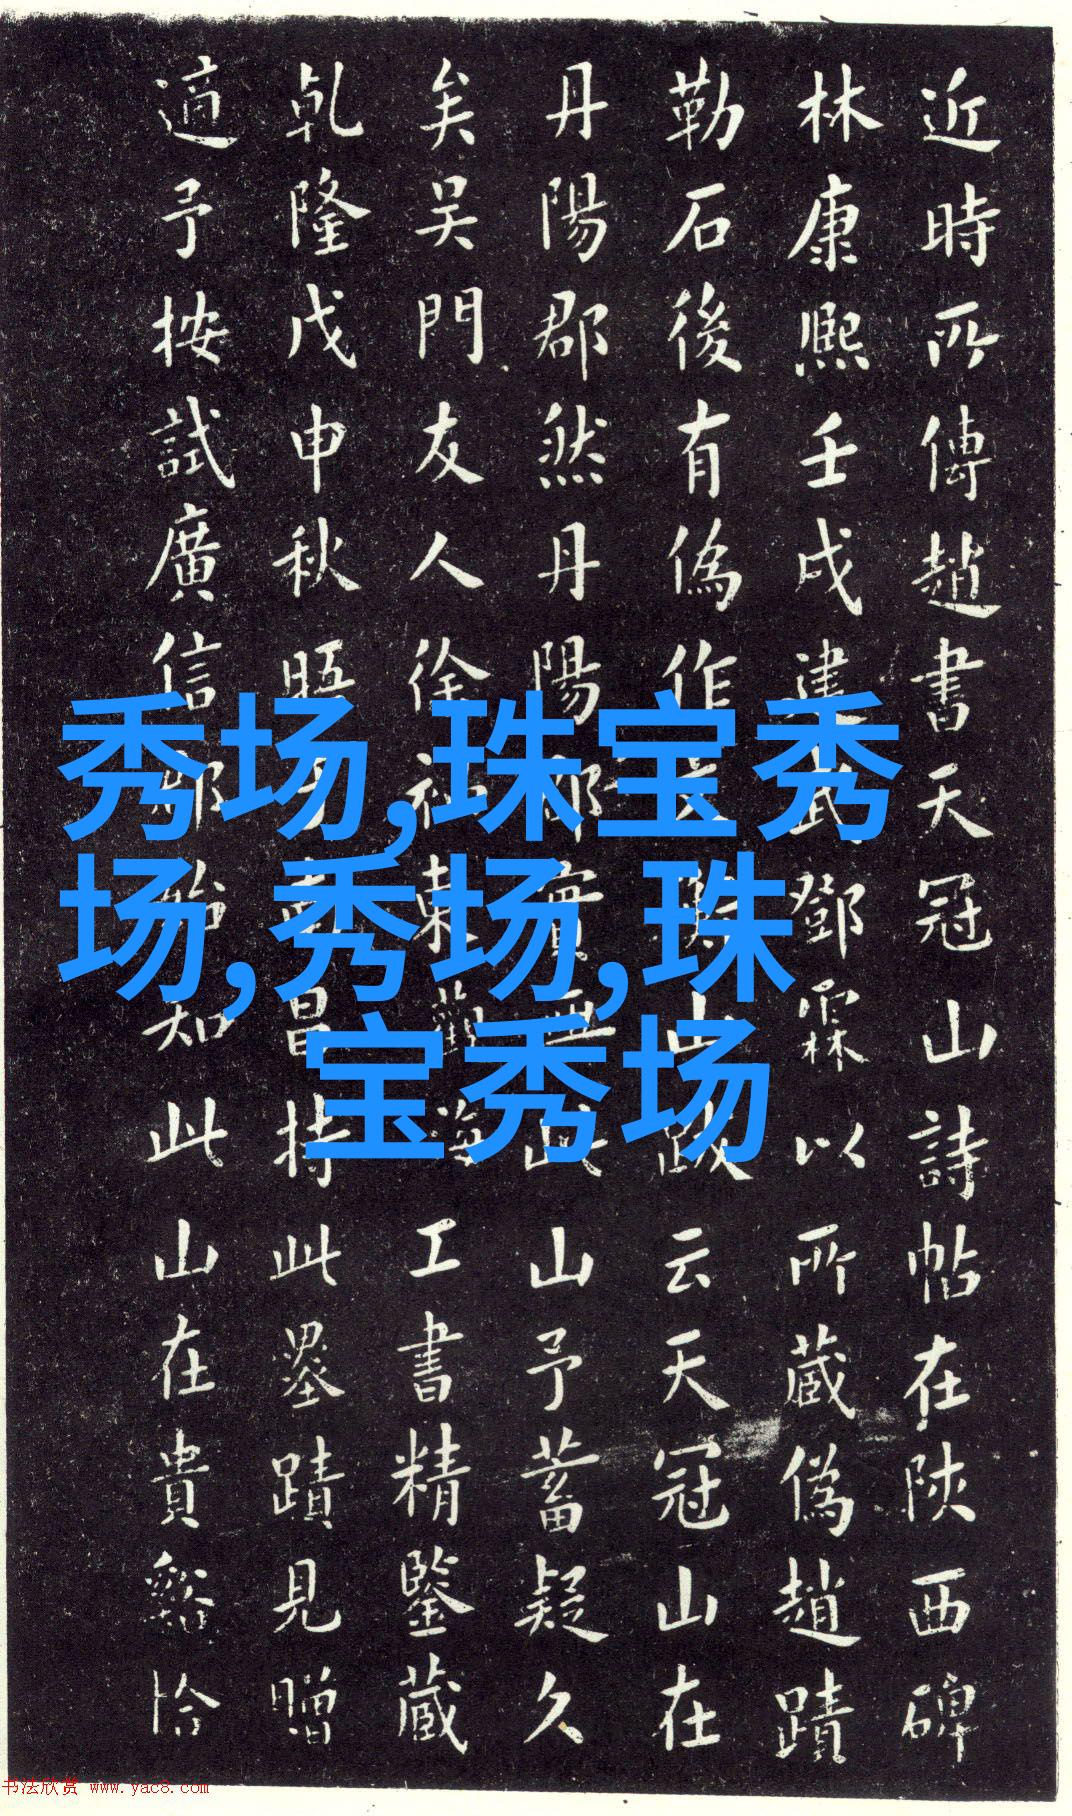 近時所傳趙書天冠山詩帖在陝西碑
林康熙壬戌建武鄧霖以所藏偽趙蹟
勒石後有偽作山跋云天冠山在
丹陽郡然丹陽郡實無此山予蓄疑久
矣吴門友人徐祉東觀海工書精鑒藏
乹隆戊申秋晤于南昌持此墨蹟見贈
適予按試廣信郡始知此山在貴谿恰
秀场,珠宝秀
场,秀场,珠
宝秀场
书法欣赏 www.yac8.com